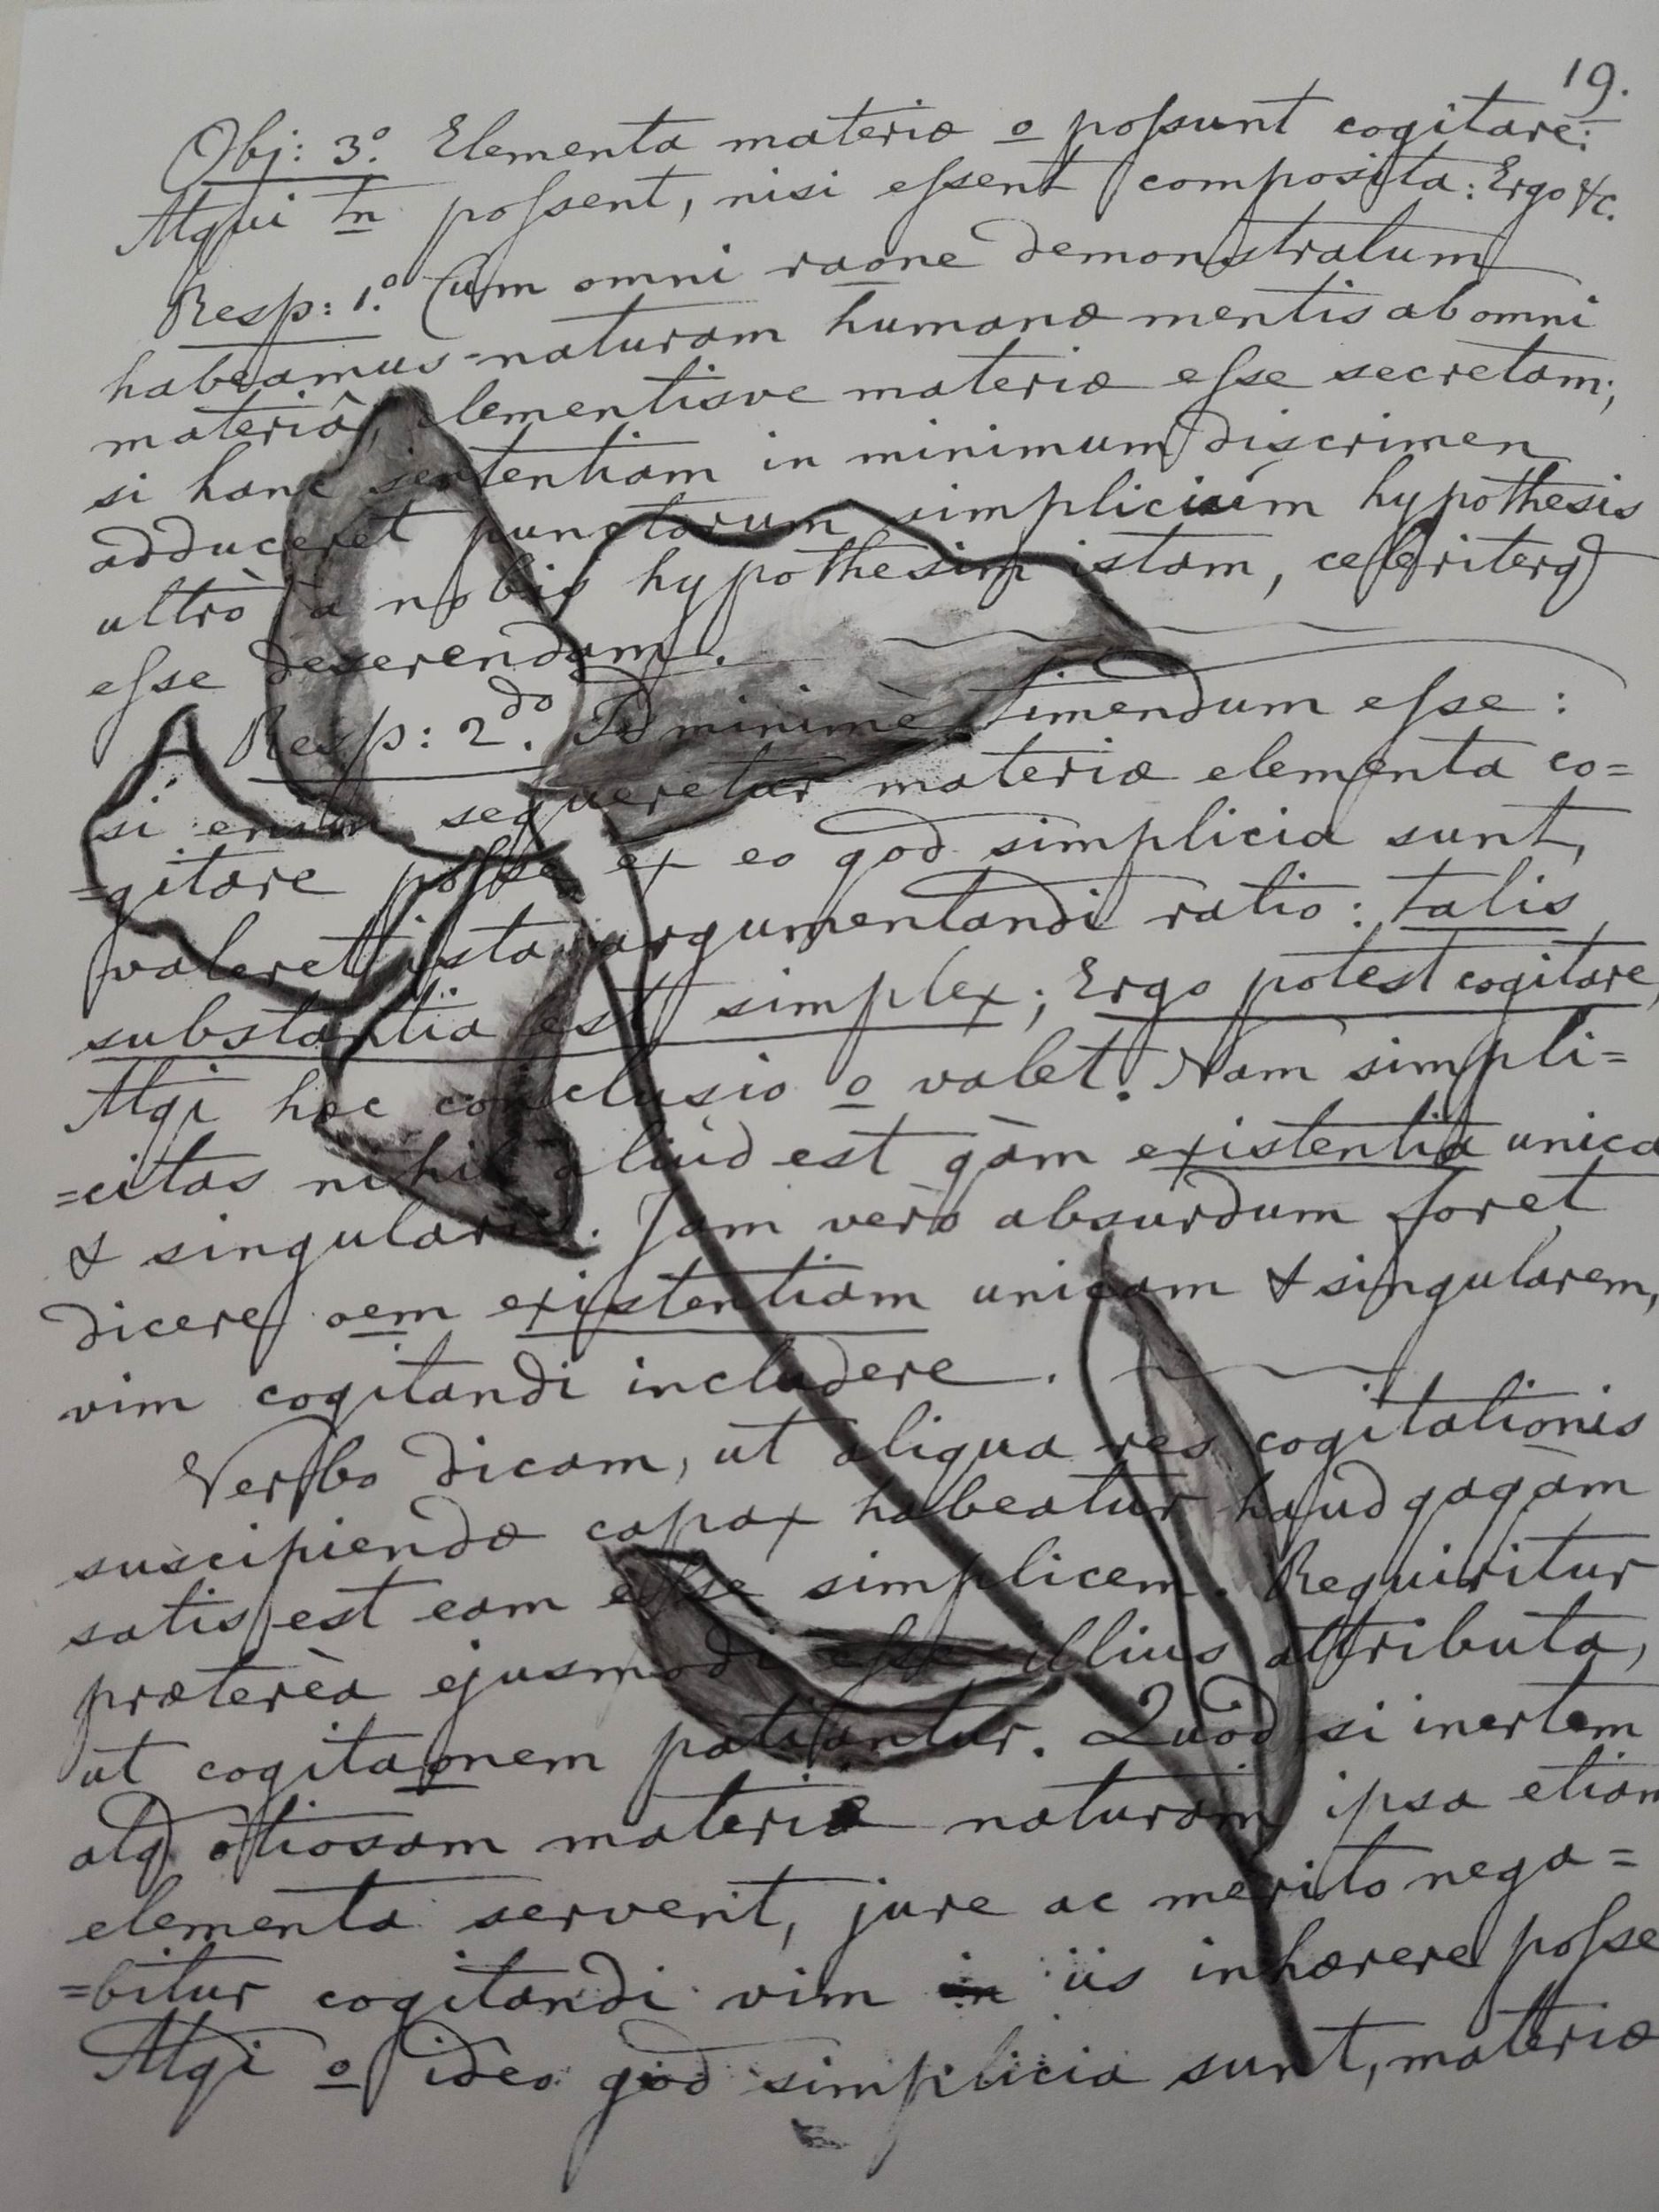 19.
Obj: 3º. Elementa materiæ o possunt cogitare:
Atqui tn possent, nisi essent composita: Ergo &c.
Resp: 1.º Cum omni raone demonstratum
habeamus naturam humanæ mentis ab omni
materiâ, elementisve materiæ esse secretam;
si hanc sententiam in minimum discrimen
adduceret punctorum simplicium hypothesis
ultrò à nobis hypothesim istam, celeriterq
esse deserendam.
Resp: 2.do Id minimè timendum esse:
si enim sequeretur materiæ elementa co=
=gitare posse ex eo qod simplicia sunt,
valeret ista argumentandi ratio: talis
substantia est simplex; Ergo potest cogitare,
Atqi hæc conclusio o valet. Nam simpli=
=citas nihil aliud est qàm existentia unica
& singularis. Jam verò absurdum foret
dicere oem existentiam unicam & singularem,
vim cogitandi includere.
Verbo dicam, ut aliqua res cogitationis
suscipiendæ capax habeatur haud qaqàm
satis est eam esse simplicem. Requiritur
prætereà ejusmodi esse illius attributa,
ut cogitaonem patiantur. Quòd si inertem
atq otiosam materiæ naturam ipsa etiam
elementa servent, jure ac merito nega=
=bitur cogitandi vim in iis inhærere posse
Atqi o ideo qod simplicia sunt, materiæ